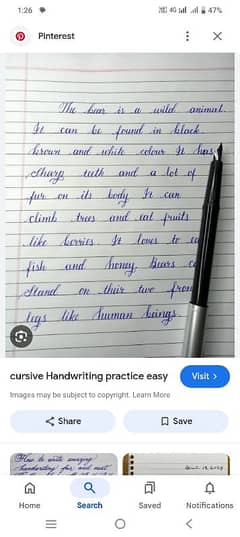 1:26
4G
47%
Pinterest
The bear is a wild animal.
It can be found in black.
brown and white colour It has
sharp teeth and a lot of
fur on its body It can
climb trees and eat fruits
like berries. It loves to
fish and honey. Bears
stand on their two
legs like human beings
cursive Handwriting practice easy
Visit >
Images may be subject to copyright. Learn More
Share
Save
How to write amazing
handwriting
Home
Search
Saved
Notifications